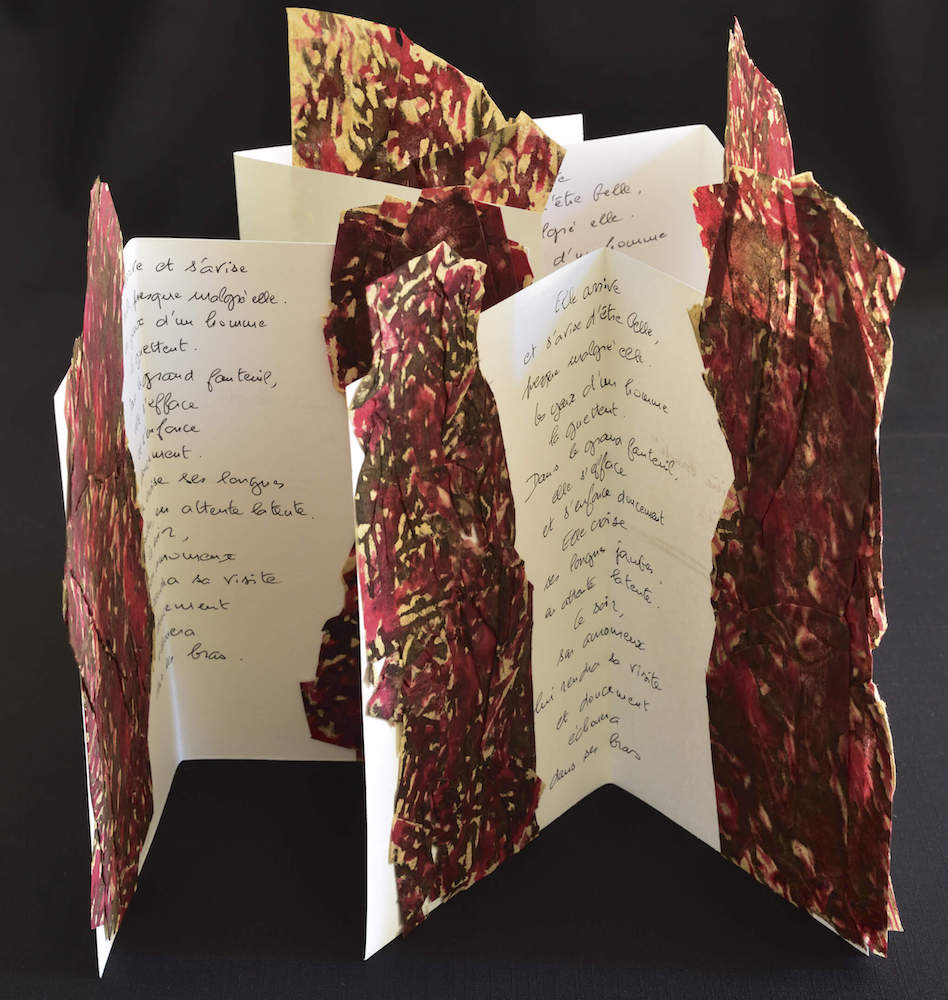 et s'avise
presque malgré elle.
d'un homme
guettent.
grand fauteuil,
s'efface
ses longues
en attente latente.
soir,
amoureux
sa visite
bras.
d'être belle,
elle.
d'un homme
Elle arrive
et s'avise d'être belle,
presque malgré elle.
les yeux d'un homme
la guettent.
Dans le grand fauteuil,
elle s'efface
et s'enfonce doucement
Elle croise
ses longues jambes,
en attente latente.
Le soir,
son amoureux
lui rendra sa visite
et doucement
échouera
dans ses bras